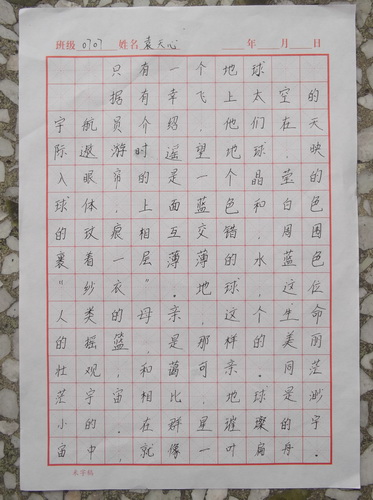 班级 0707 姓名 袁天心 年 月 日
只有一个地球
据有幸飞上太空的
宇航员介绍,他们在天
际遨游时遥望地球,映
入眼帘的是一个晶莹的
球体,上面蓝色和白色
的纹痕相互交错,周围
裹着一层薄薄的水蓝色
“纱衣”。地球,这位
人类的母亲,这个生命
的摇篮,是那样的美丽
壮观,和蔼可亲。同茫
茫宇宙相比,地球是渺
小的。在群星璀璨的宇
宙中,就像一叶扁舟。